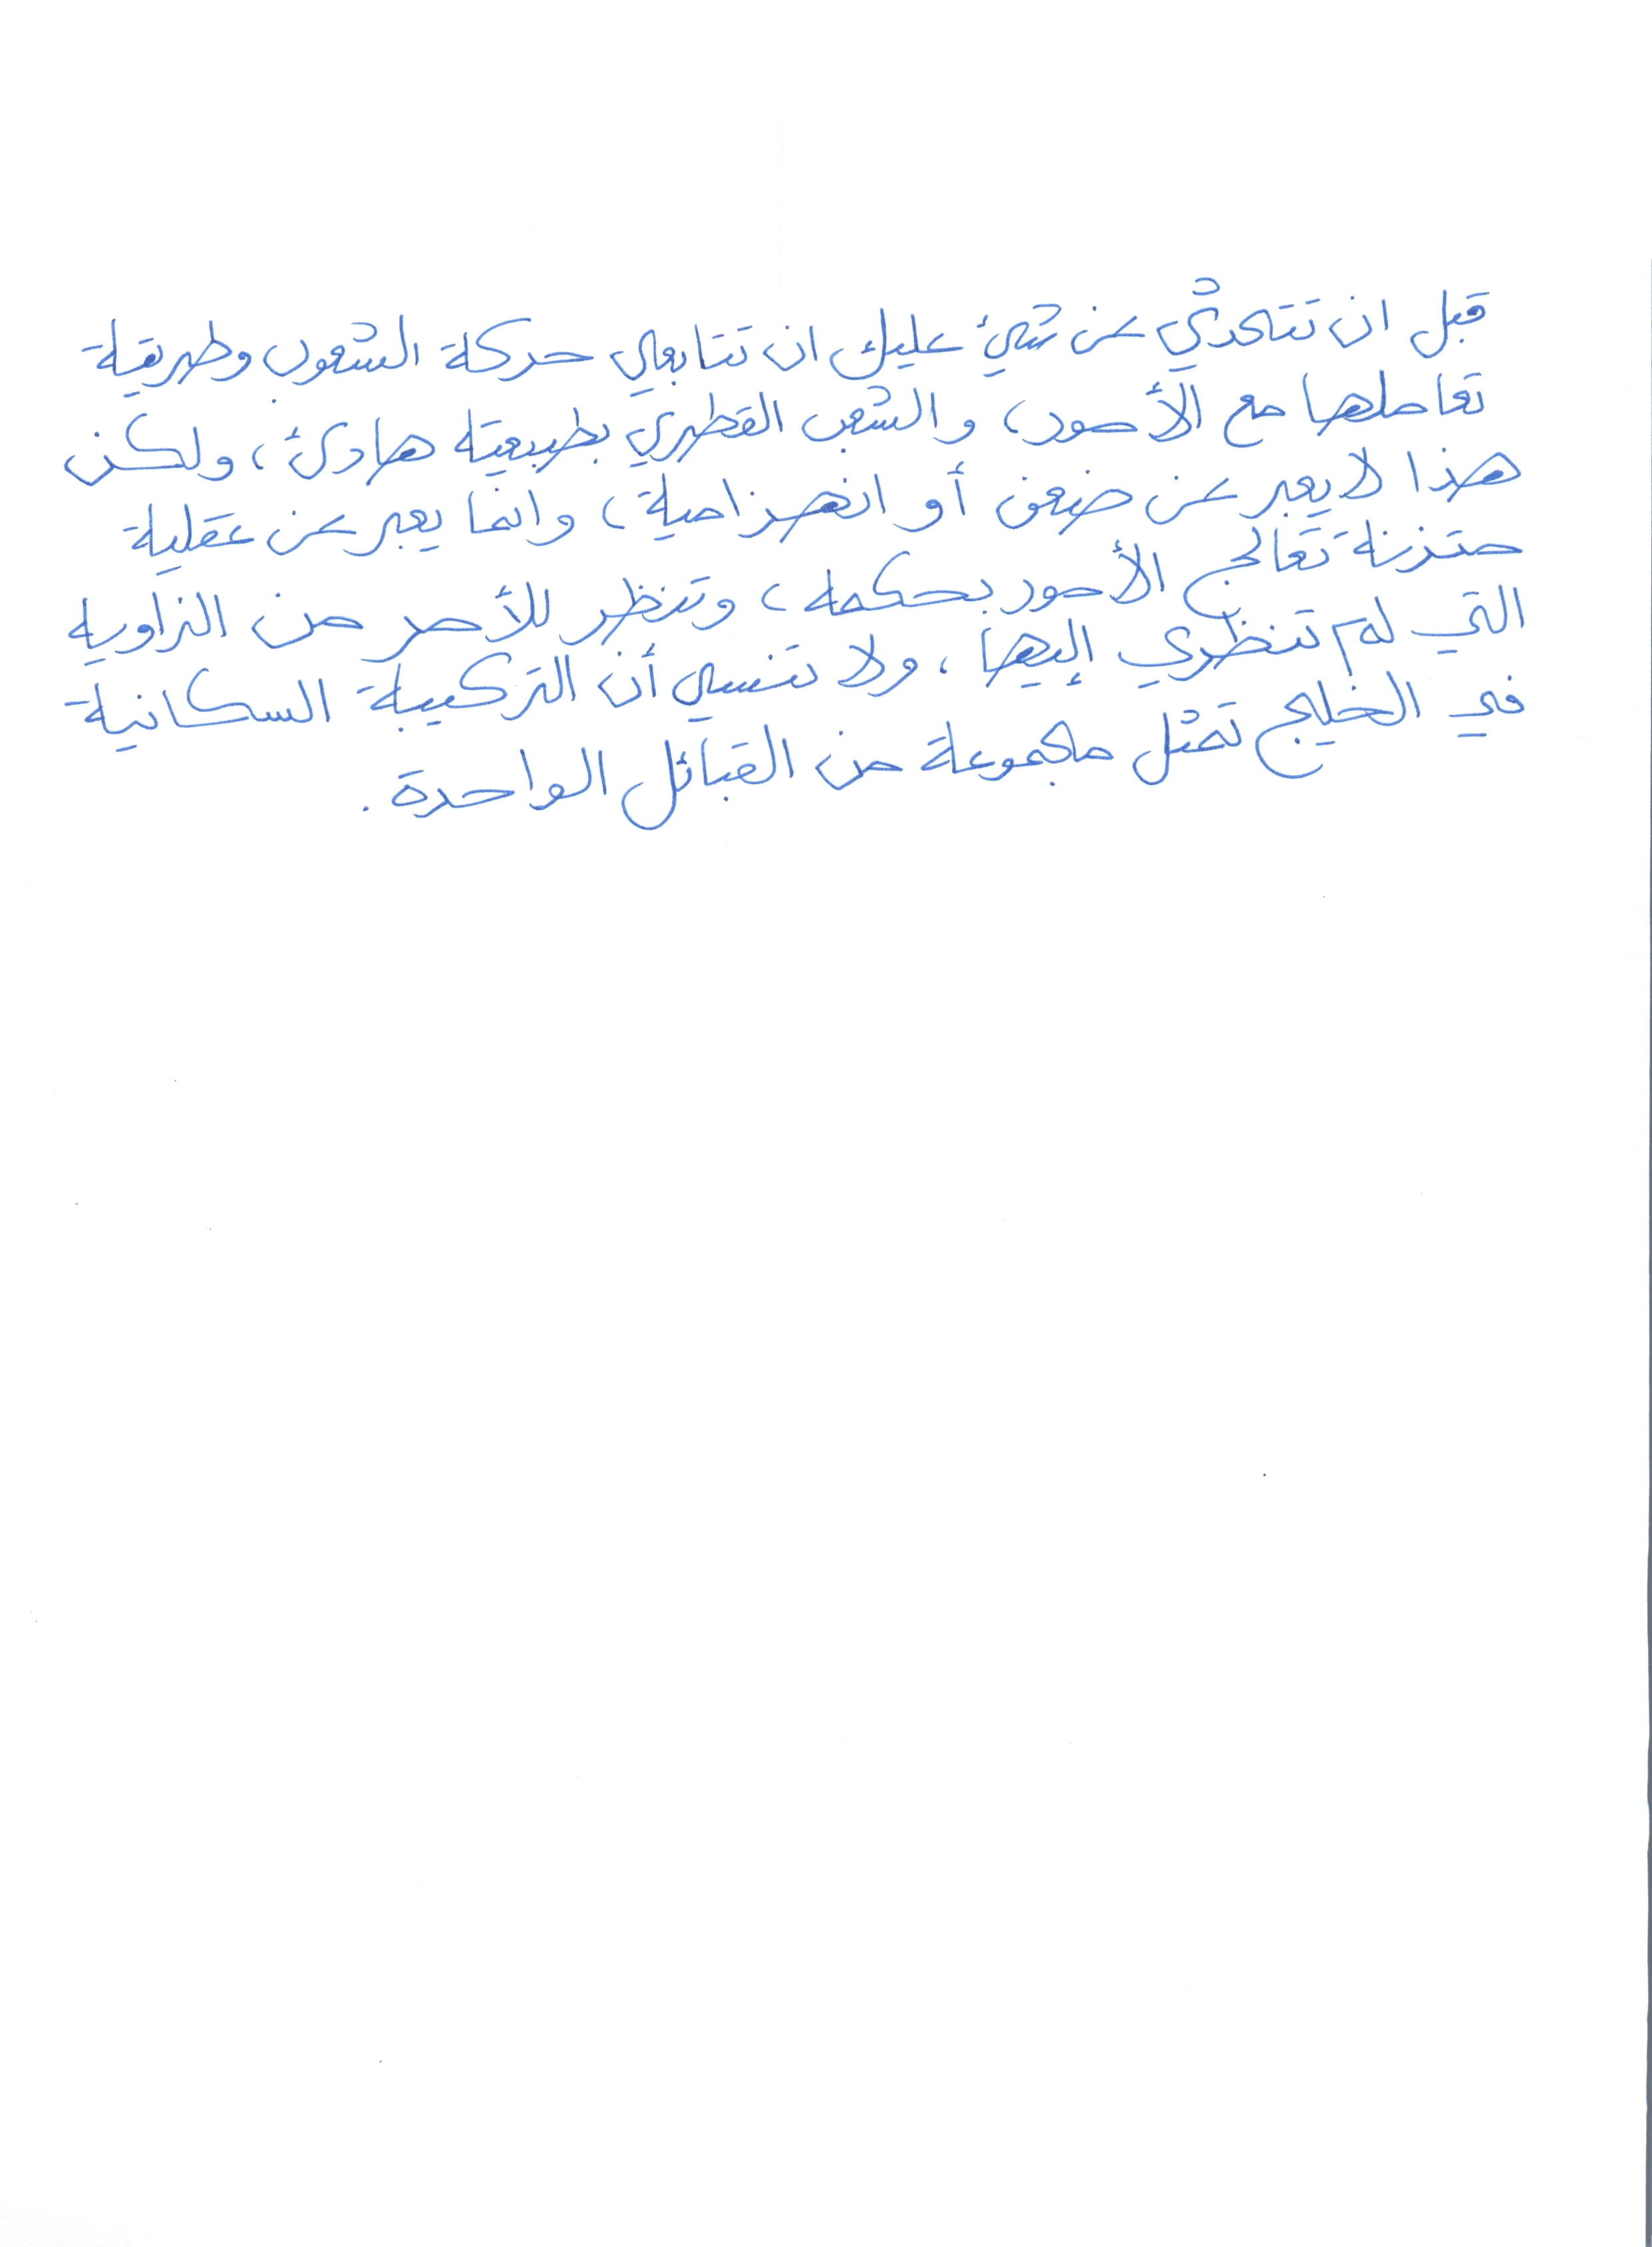 قبل ان تتحدثي عن شيئ عليك ان تتابعي حركة الشعوب وطريقة
تعاملها مع الأمور، والشعب القطري بطبيعته هادئ، ولكن
هذا لا يعبر عن ضعف أو انهزامية، وانما يعبر عن عقلية
متزنة تعالج الأمور بحكمه، وتنظر للأمر من الزاويه
التي لم تنظري إليها، ولا تنسي أن التركيبة السكانية
في الخليج تمثل مجموعة من القبائل الواحدة.